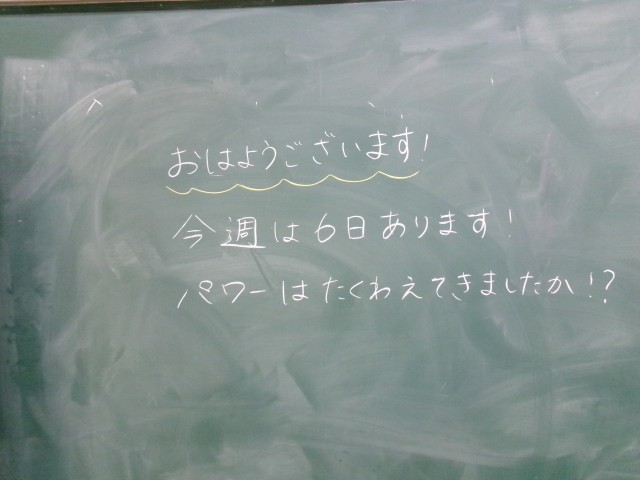 おはようございます!
今週は6日あります!
パワーはたくわえてきましたか!?